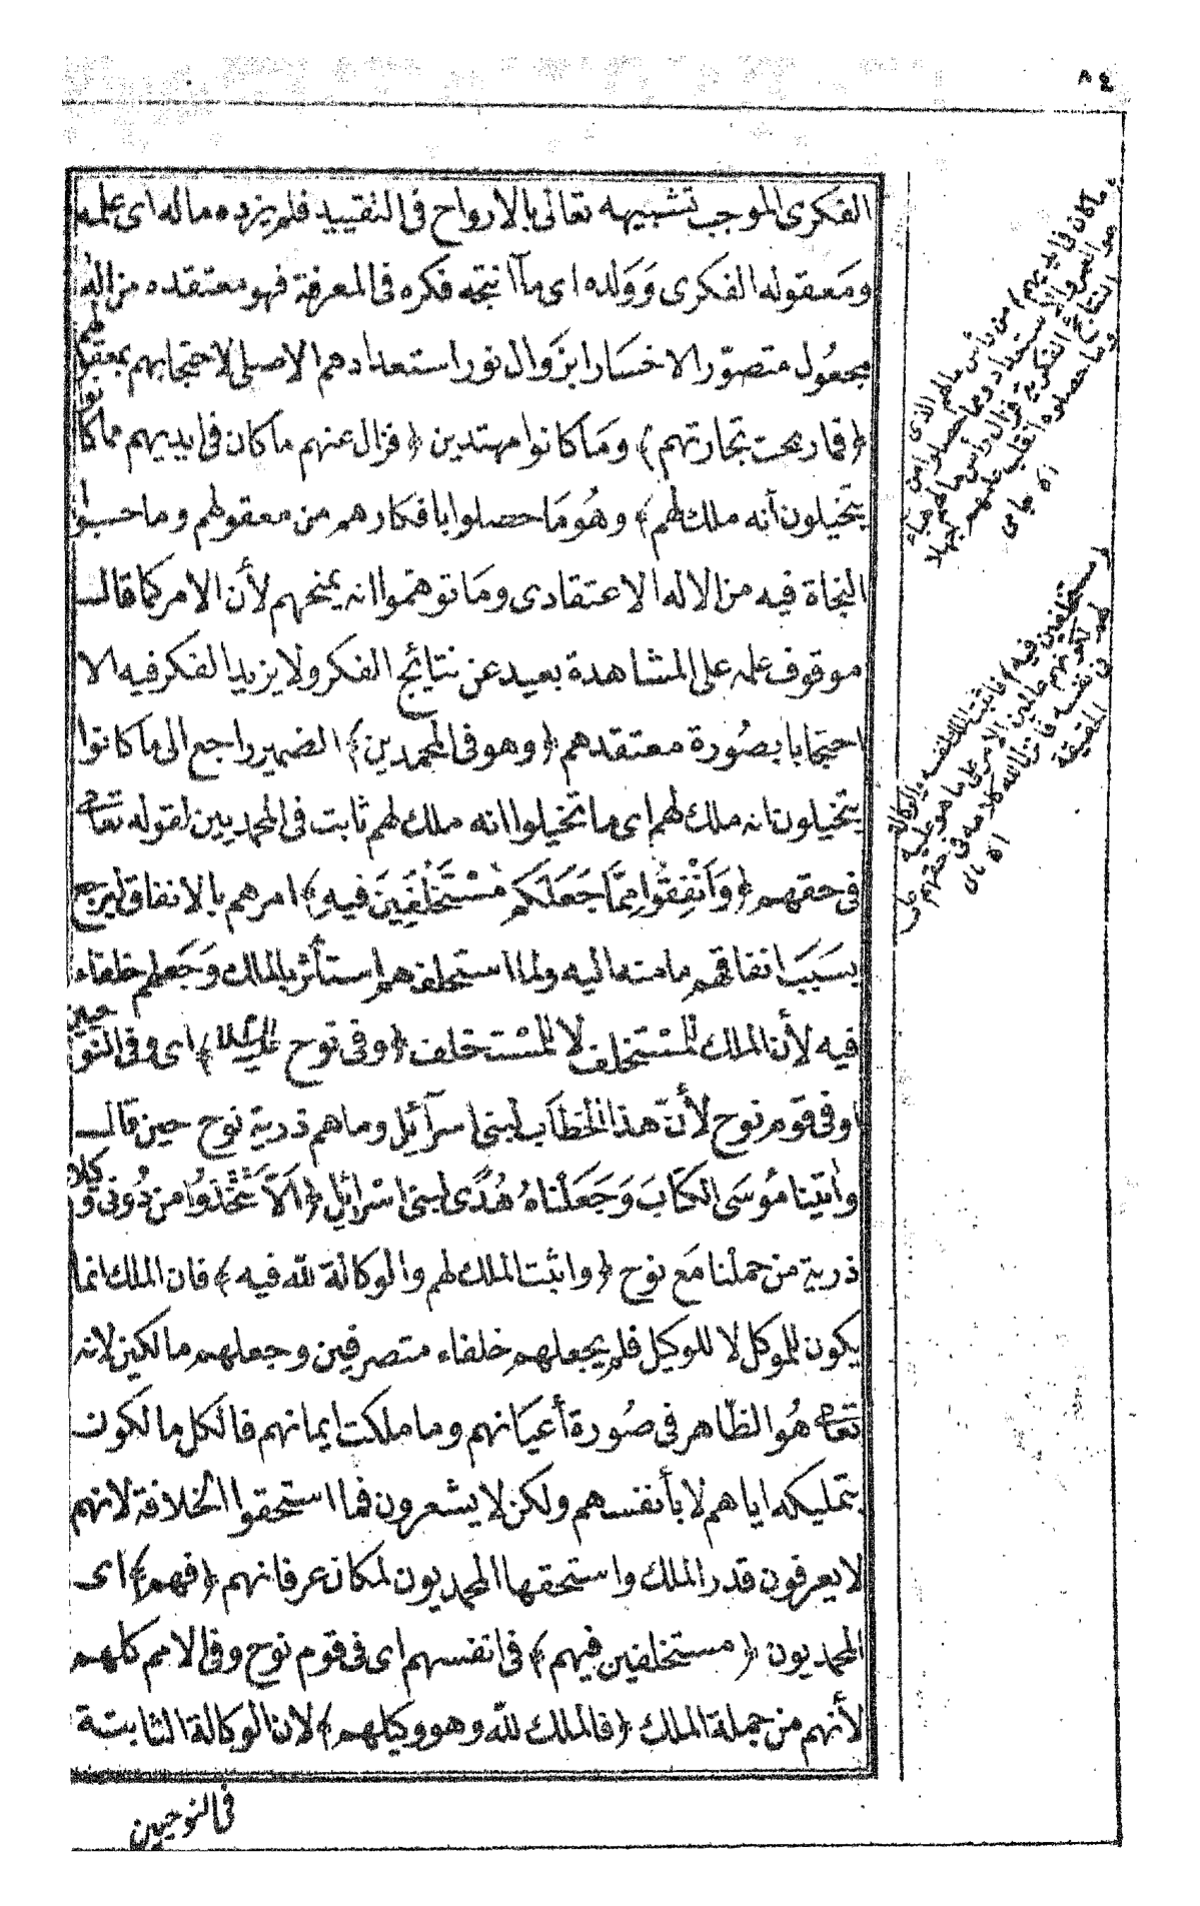 ٨٤
الفكرى الموجب تشبيهه تعالى بالارواح فى التقييد فلم يزده ماله اى علمه
ومعقوله الفكرى وَوَلده اى مآ انتجه فكره فى المعرفة فهو معتقده من اله
مجعُول متصوّر الا خسَارا بزوَال نور استعدادهم الاصلى لاحتجابهم بمعقولهم
﴿فما ربحت تجارتهم﴾ ومَا كانوا مهتدين ﴿فزال عنهم ماكان فى ايديهم مما كانوا
يتخيلون أنه ملك لهم﴾ وهُو مَا حصلوا بافكارهم من معقولهم وما حسبوا
النجاة فيه من الاله الاعتقادى ومَا توهموا انه يمنحهم لأن الامر كما قال
موقوف علمه على المشاهدة بعيد عن نتائج الفكر ولا يزيد الفكر فيه الا
احتجابا بصُورة معتقدهم ﴿وهو فى المحمديين﴾ الضمير راجع الى ما كانوا
يتخيلون انه ملك لهم اى ما تخيلوا انه ملك لهم ثابت فى المحمديين لقوله تعالى
فى حقهم ﴿وَاَنْفِقُوا مِمَّا جَعَلَكم مُسْتَخْلَفِينَ فيه﴾ امرهم بالانفاق ليرجع
بسَبَب انفاقهم ما منه اليه ولما استخلفهم استأثر بالملك وَجَعلهم خلفاء
فيه لأن الملك للمسْتخلِف لا للمسْتخلف ﴿وفى نوح عليه السلام﴾ اى وفى النوحيين
او فى قوم نوح لأنّ هذا الخطاب لبنى اسرآئيل وما هم ذرية نوح حين قال
وآتينا مُوسَى الكتَابَ وَجَعَلْنَاهُ هُدًى لبنى اسْرائيل ﴿اَلاَّ تَتَّخذُوا من دُونى وكيلا﴾
ذرية من حملنا مَع نوح ﴿واثبت الملك لهم والوكالة لله فيه﴾ فان الملك انما
يكون للموكل لا للوكيل فلم يجعلهم خلفاء متصرفين وجعلهم مالكين لانه
تعالى هُو الظاهر فى صُورة أعيَانهم وما ملكت ايمانهم فالكل مالكون
بتمليكه اياهم لا بأنفسهم ولكن لا يشعرون فما استحقوا الخلافة لانهم
لا يعرفون قدر الملك واستحقها المحمديون لمكان عرفانهم ﴿فهم﴾ اى
المحمديون ﴿مستخلفين فيهم﴾ فى انفسهم اى فى قوم نوح وفى الامم كلهم
لأنهم من جملة الملك ﴿فالملك لله وهو وكيلهم﴾ لان الوكالة الثابتة
فى النوحيين
ماكان فى ايديهم من رأس مالهم الذى
هو العمر والاستعداد وما حصلوا من
النتائج الفكرية فزال رأس مالهم
وما حصلوه انقلب عليهم جهلا
اه جامى
مستخلفين فيه فاثبت الملك لنفسه والوكالة
لهم لكونهم عالمين الامر على ما هو عليه
فى نفسه فانزل الله كلامه فى حقهم على
الحقيقة
اه بالى